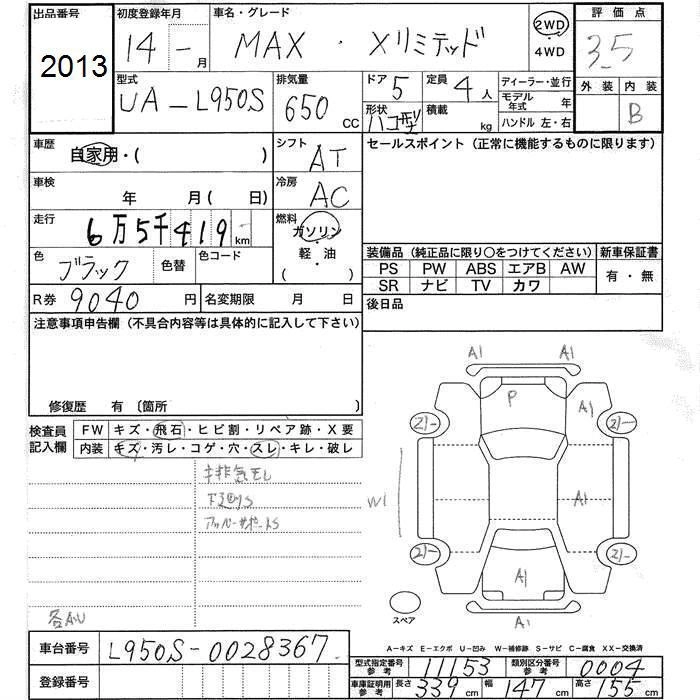 出品番号 初度登録年月 車名・グレード 評価点
2013 14 - 月 MAX ・ Xリミテッド 2WD 4WD 3.5
型式 排気量 ドア 定員 ディーラー・並行 外装 内装
UA-L950S 650 CC 5 4人 モデル年式 年 B
形状 ハコ型 積載 kg ハンドル 左・右
車歴 自家用・( ) シフト AT セールスポイント(正常に機能するものに限ります)
車検 年 月( 日) 冷房 AC
走行 6万5千419 km 燃料 ガソリン・軽・油 ( )
色 ブラック 色替 色コード
装備品(純正品に限り○をつけてください) 新車保証書
PS PW ABS エアB AW 有・無
SR ナビ TV カワ
R券 9040 円 名変期限 月 日 後日品
注意事項申告欄(不具合内容等は具体的に記入して下さい)
修復歴 有 〔箇所 〕
検査員記入欄 FW キズ・飛石・ヒビ割・リペア跡・X要
内装 キズ・汚レ・コゲ・穴・スレ・キレ・破レ
下廻りS
アッパーサポートS
A1 A1
P A1
21- 21-
W1 A1
21- 21-
A1
スペア A1
A-キズ E-エクボ U-凹み W-補修跡 S-サビ C-腐食 XX-交換済
車台番号 L950S-0028367
型式指定番号 参考 11153 類別区分番号 参考 0004
登録番号
車庫証明用 参考 長さ 339 cm 幅 147 cm 高さ 155 cm